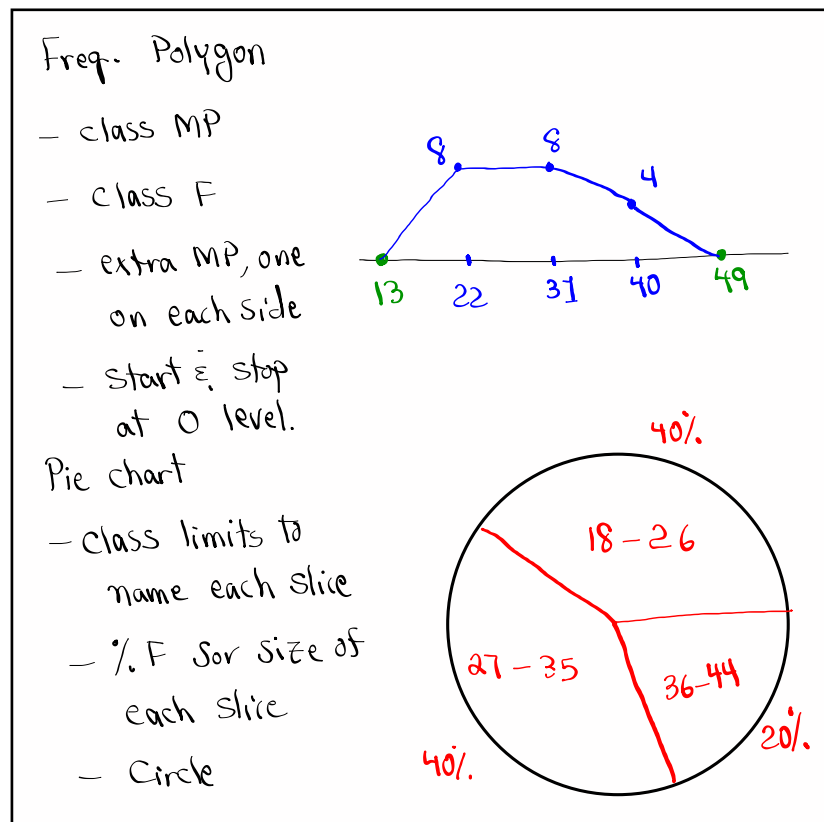 Freq. Polygon
- class MP
- class F
- extra MP, one
on each side
- start & stop
at 0 level.
8
8
4
13
22
31
40
49
Pie chart
- class limits to
name each slice
- % F for size of
each slice
- Circle
40%
18-26
27-35
36-44
40%
20%